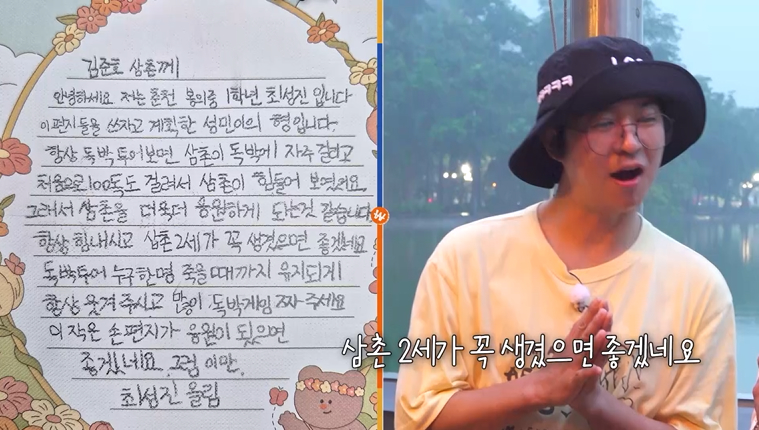 김준호 삼촌께
안녕하세요 저는 춘천 봉의중 1학년 최성진 입니다
이 편지들을 쓰자고 계획한 성민이의 형입니다.
항상 독박투어보면 삼촌이 독박에 자주 걸리고
처음으로 100독도 걸려서 삼촌이 힘들어 보였어요.
그러서 삼촌을 더욱더 응원하게 되는것 같습니다
항상 힘내시고 삼촌2세가 꼭 생겼으면 좋겠네요
독박투어 누구 한명 죽을때까지 유지되게
항상 웃겨 주시고 많이 독박게임 짜 주세요
이 작은 손편지가 응원이 됬으면
좋겠네요 그럼 이만.
최성진 올림
ㅋㅋㅋ
삼촌 2세가 꼭 생겼으면 좋겠네요